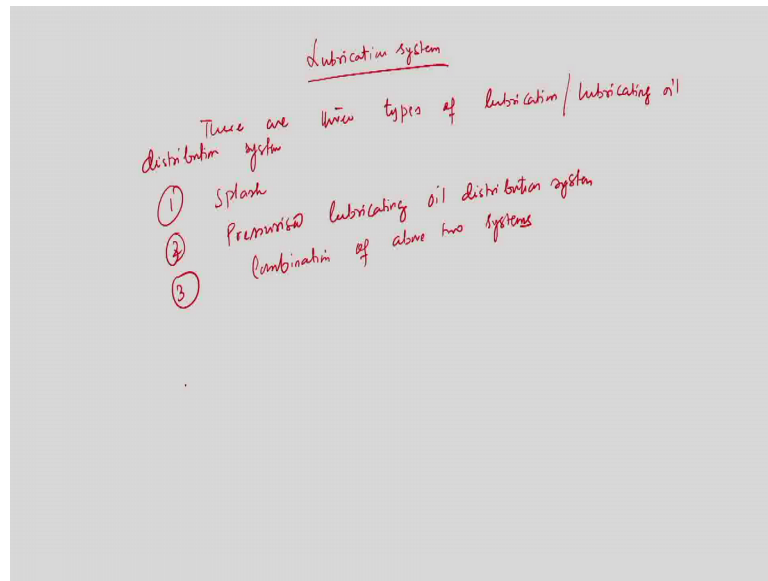 Lubrication system
There are three types of lubrication/lubricating oil
distribution system
1 Splash
2 Pressurised lubricating oil distribution system
3 Combination of above two systems